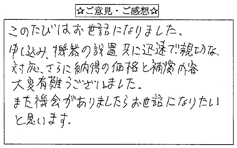 ☆ご意見・ご感想☆
このたびはお世話になりました。
申し込み、機器の設置共に迅速で親切な
対応、さらに納得の価格と補償内容
大変有難うございました。
また機会がありましたらお世話になりたい
と思います。